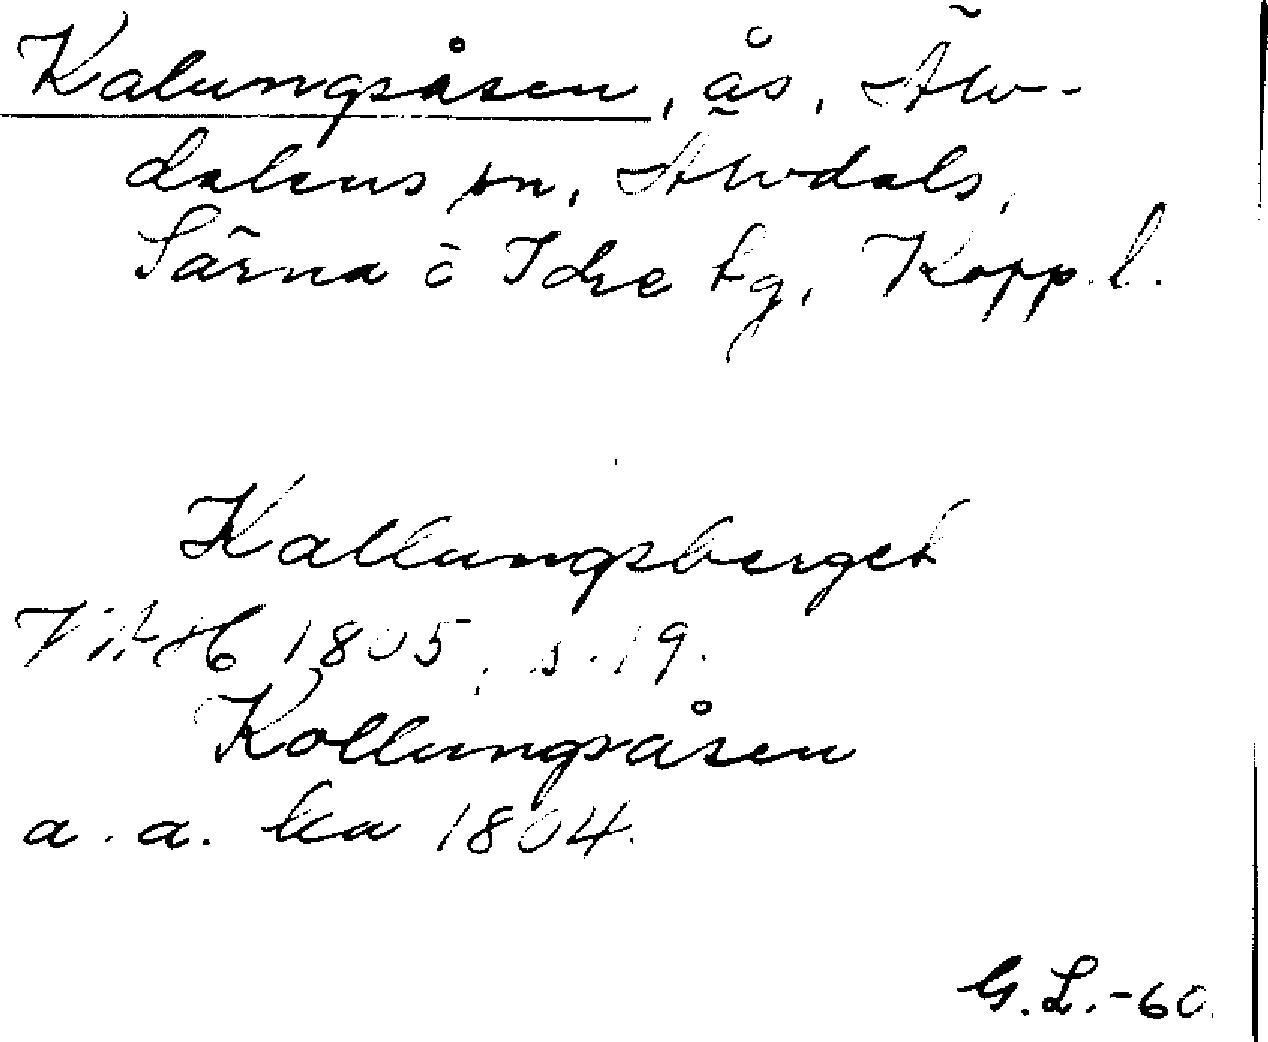 Kalungsåsen, ås, Älv-
dalens sn, Älvdals,
Särna o Idre tg, Kopp.l.
Kallungsberget
1805, s. 19.
Kollungsåsen
a. a. ka 1804.
G.L.-60.